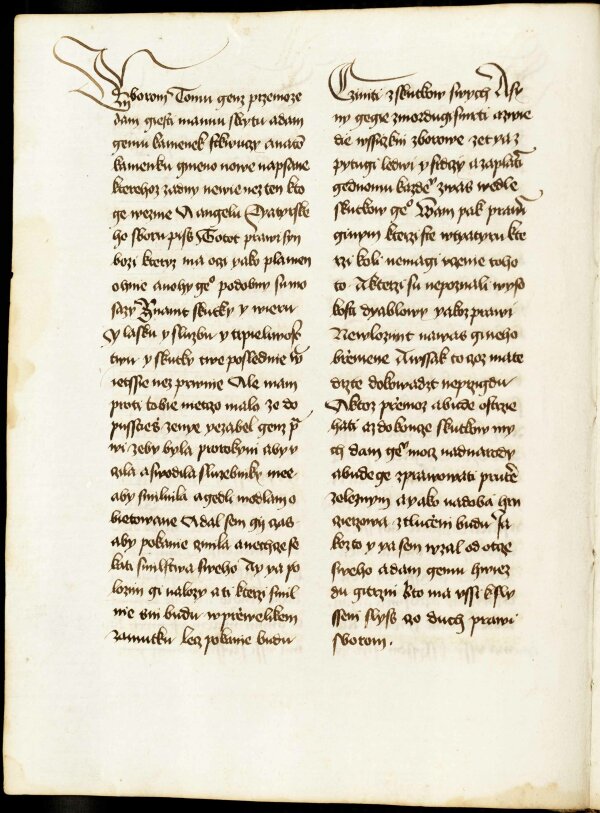 Sborom Tomu genz przemoze
dam giesti mannu skrytu a dam
gemu kamenek stkwuczy a na tō
kamenku gmeno nowe napsane
kterehoz zadny newie nez ten kto
ge wezme A angelu Tyatyrske
ho sboru piss Totot prawi syn
bozi kteryz ma oczi yako plamen
ohnie a nohy geᵒ podobny su mo
sazy Znamt skutky y wieru
y lasku y sluzbu y trpieliwost
twu y skutky twe poslednie w̄
ietssie nez prwnie Ale mam
proti tobie nieczo malo ze do
pusstiess zenye yezabel genz p̄
wi zeby byla prorokyni aby v
czila a swodila sluzebniky me
aby smilnila a gedli modlam o
bietowane A dal sem gij czas
aby pokanie czinila a nechcze se
kati smilstwa sweho Ay ya po
lozim gi na lozy a ti kterzi smil
nie s ni budu w przewelikem
zamutku lecz pokanie budu
Czinti z skutkow swych A sy
ny gegie zmordugi smrti a zwie
die wssiczkni zborowe ze t ya z
pytugi ledwi y srdczy a zaplati
gednomu kazdeᵒ z was wedle
skutkow geᵒ Wam pak prawi
ginym kterzi ste w tyatyru kte
rzi koli nemagi vczenie toho
to A kterzi su nepoznali wyso
kosti dyablowy yakoz prawi
Newlozimt na was gineho
bzemene A wssak to czoz mate
drzte dokowadzt neprzigdu
A ktoz p̄emoz a bude ostrzie
hati az do koncze skutkow my
ch dam geᵐ mocz nad narody
a bude ge zprawowati prutē
zeleznym a yako nadoba hrn
czierzowa ztluczeni budu Ja
koz to y ya sem wzal od otcze
sweho a dam gemu hwiez
du gitrzni Kto ma vssi k sly
sseni slyss czo duch prawi
sborom.